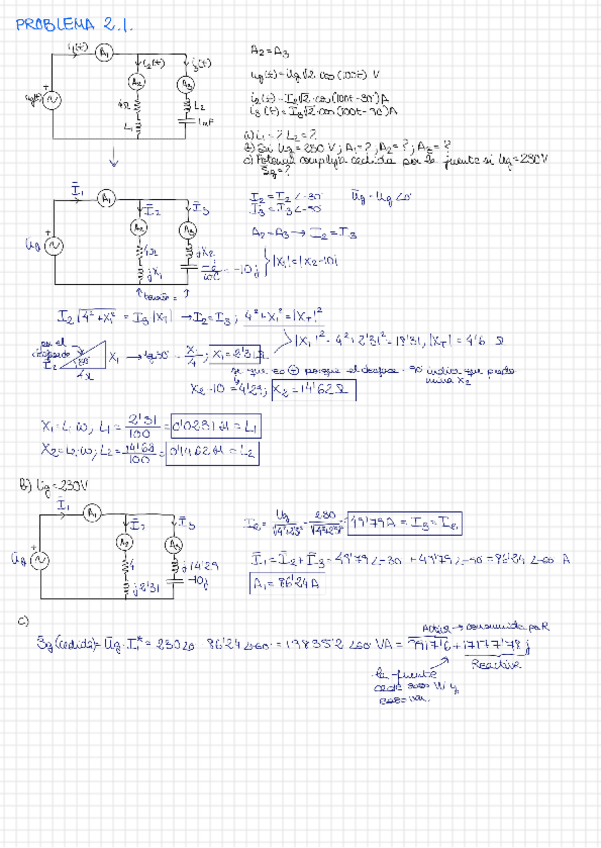 PROBLEMA 2.1.
i₁(t) A₁
i₂(t) i₃(t)
A₂ A₃
4Ω L₂
L₁ 1mF
A₂ = A₃
ug(t) = Ug√2 cos(100t) V
i₂(t) = I₂√2 · cos(100t-30°) A
i₃(t) = I₃√2 cos(100t-90°) A
a) L₁ = ? L₂ = ?
b) Si Ug = 230 V; A₁ = ?, A₂ = ?; A₃ = ?
c) Potencia compleja cedida por la fuente si Ug = 230V
Sg = ?
I₁ A₁
I₂ I₃
Ug A₂ A₃
4Ω jX₂
jX₁ -10j
I₂ = I₂∠-30 Ug = Ug∠0
I₃ = I₃∠-90
A₂ = A₃ → I₂ = I₃
|X_T| = |X₂-10|
I₂√4²+X₁² = I₃|X_T| → I₂ = I₃; 4²+X₁² = |X_T|²
|X_T|² = 4²+2'31² = |X_T| = 4'6 Ω
30° X₁ → tg30 = X₁/4; X₁ = 2'31Ω
porque el desfase -90 indica que
X₂-10 = X₂ = 14'62Ω
X₁ = L·ω; L₁ = 2'31/100 = 0'0231 H = L₁
X₂ = L·ω; L₂ = /100 = 0'1462H = L₂
b) Ug = 230V
I₁ A₁
I₂ I₃
Ug A₂ A₃
4 j14'29
j2'31 -10j
I₂ = Ug/√4²+2'31² = 230/√4²+2'31² = 49'79A = I₃ = I₂
I₁ = I₂+I₃ = 49'79∠-30 + 49'79∠-90 = 86'24∠-60 A
A₁ = 86'24A
c)
Sg (cedida) = Ug·I₁* = 230∠0 · 86'24∠60 = 19835'2∠60 VA = 9917'6+17177'78j
Activa → consumida por R
Reactiva
la fuente
cede